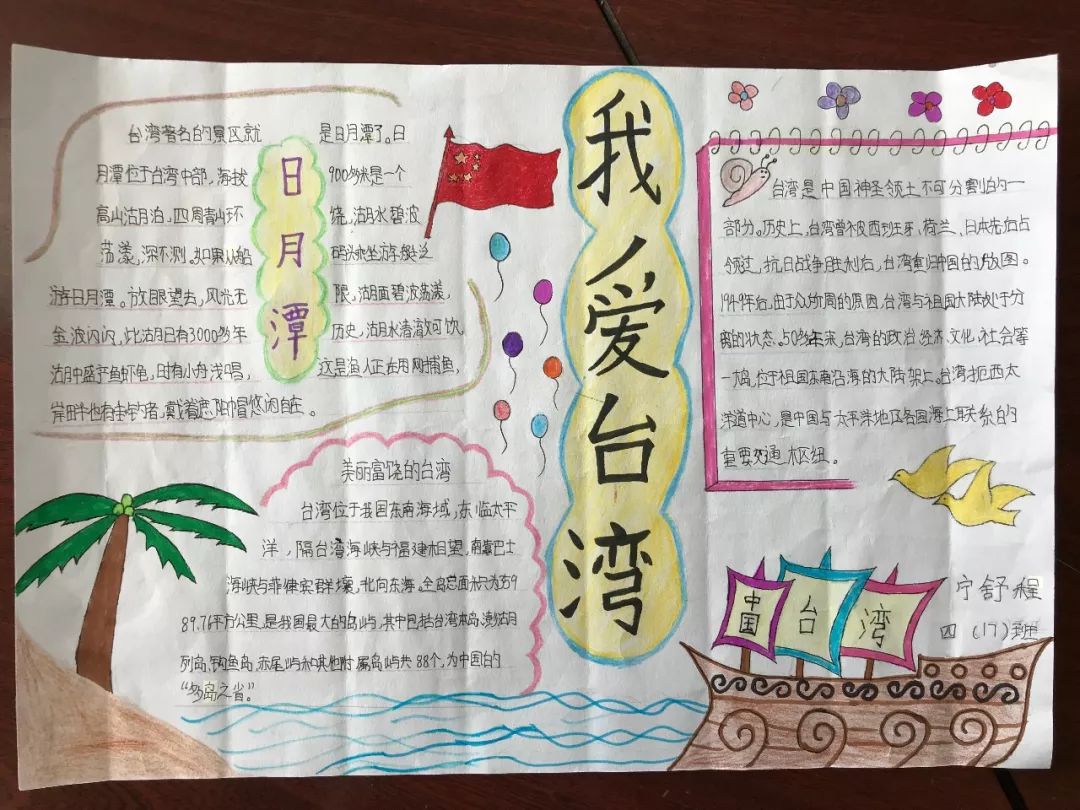 我爱台湾
日月潭
台湾著名的景区就是日月潭了。日
月潭位于台湾中部，海拔900多米是一个
高山湖泊，四周青山环绕，湖水碧波
荡漾，深不测。如果从船码头乘坐游艇泛
游日月潭。放眼望去，风光无限，湖面碧波荡漾，
金波闪闪，此湖已有3000多年历史，湖水清澈可饮，
湖中盛产鱼虾龟，时有小舟浅唱，这是渔人正在用网捕鱼，
岸畔也有垂钓者，戴着遮阳帽悠闲自在。
美丽富饶的台湾
台湾位于我国东南海域，东临太平
洋，隔台湾海峡与福建相望，南靠巴士
海峡与菲律宾群壤，北向东海。全岛总面积为359
89.76平方公里，是我国最大的岛屿，其中包括台湾本岛、澎湖
列岛、钓鱼岛、赤尾屿和其他附属岛屿共88个，为中国的
“多岛之省”。
台湾是中国神圣领土不可分割的一
部分。历史上，台湾曾被西班牙，荷兰、日本先后占
领过，抗日战争胜利后，台湾重归中国的版图。
1949年后，由于众所周的原因，台湾与祖国大陆处于分
离的状态。50多年来，台湾的政治、经济、文化、社会等
一岛，位于祖国东南沿海的大陆架上。台湾扼西太
洋道中心，是中国与太平洋地区各国海上联系的
重要交通枢纽。
中国
台
湾
宁舒程
四（17）班